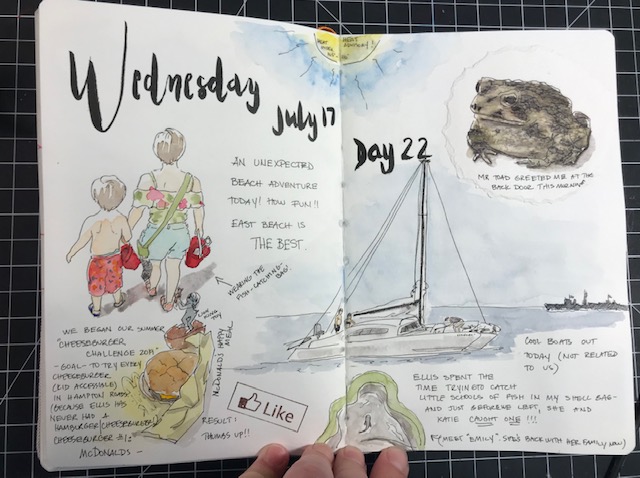 Wednesday
July 17
Day 22
HEAT ADVISORY!
AN UNEXPECTED
BEACH ADVENTURE
TODAY! HOW FUN!!
EAST BEACH IS
THE BEST.
WEARING THE
FISH-CATCHING
BAG!
MR TOAD GREETED ME AT THE
BACK DOOR THIS MORNING
WE BEGAN OUR SUMMER
"CHEESEBURGER
CHALLENGE 2019"
- GOAL - TO TRY EVERY
CHEESEBURGER
(KID ACCEPTABLE)
IN HAMPTON ROADS.
(BECAUSE ELLIS HAS
NEVER HAD A
HAMBURGER/CHEESEBURGER)
CHEESEBURGER #1:
MCDONALDS -
MCDONALD'S HAPPY
MEAL
Like
RESULT:
THUMBS UP!!
COOL BOATS OUT
TODAY (NOT RELATED
TO US)
ELLIS SPENT THE
TIME TRYING TO CATCH
LITTLE SCHOOLS OF FISH IN MY SHELL BAG-
AND JUST BEFORE WE LEFT, SHE AND
KATIE CAUGHT ONE!!!
(MEET "EMILY". SHE'S BACK WITH HER FAMILY NOW)